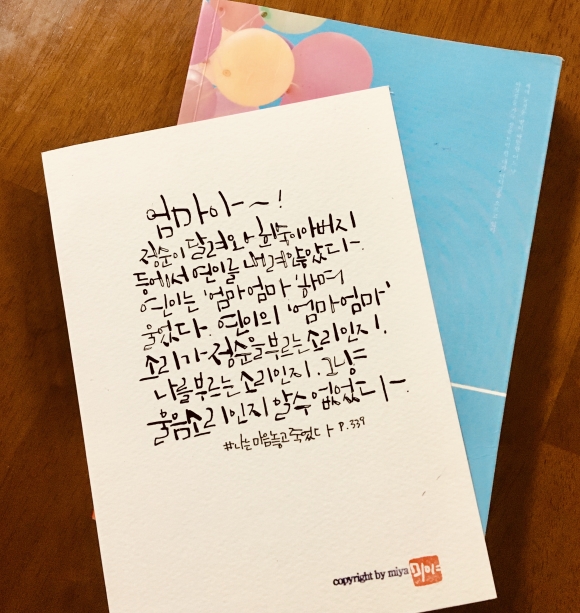 엄마아~!
정순이 달려와 희숙이아버지
등에서 연이를 내려안았다.
연이는 '엄마엄마' 하며
울었다. 연이의 '엄마엄마'
소리가 정순을부르는소리인지,
나를부르는소리인지. 그냥
울음소리인지 알수없었다.
#나는마음놓고죽었다 P.339
copyright by miya 미야